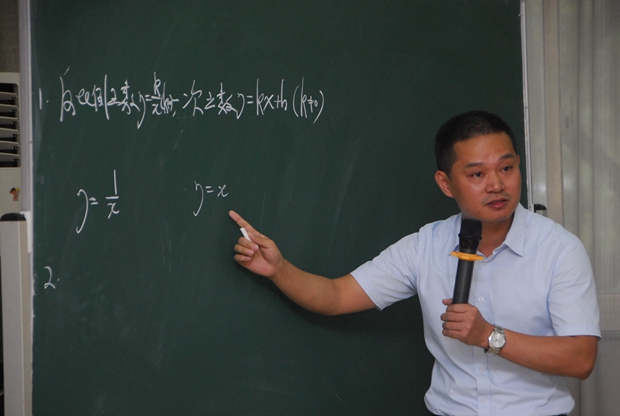 1. 反比例函数y=k/x(k≠0), 一次函数y=kx+b (k≠0)
y=1/x y=x
2.